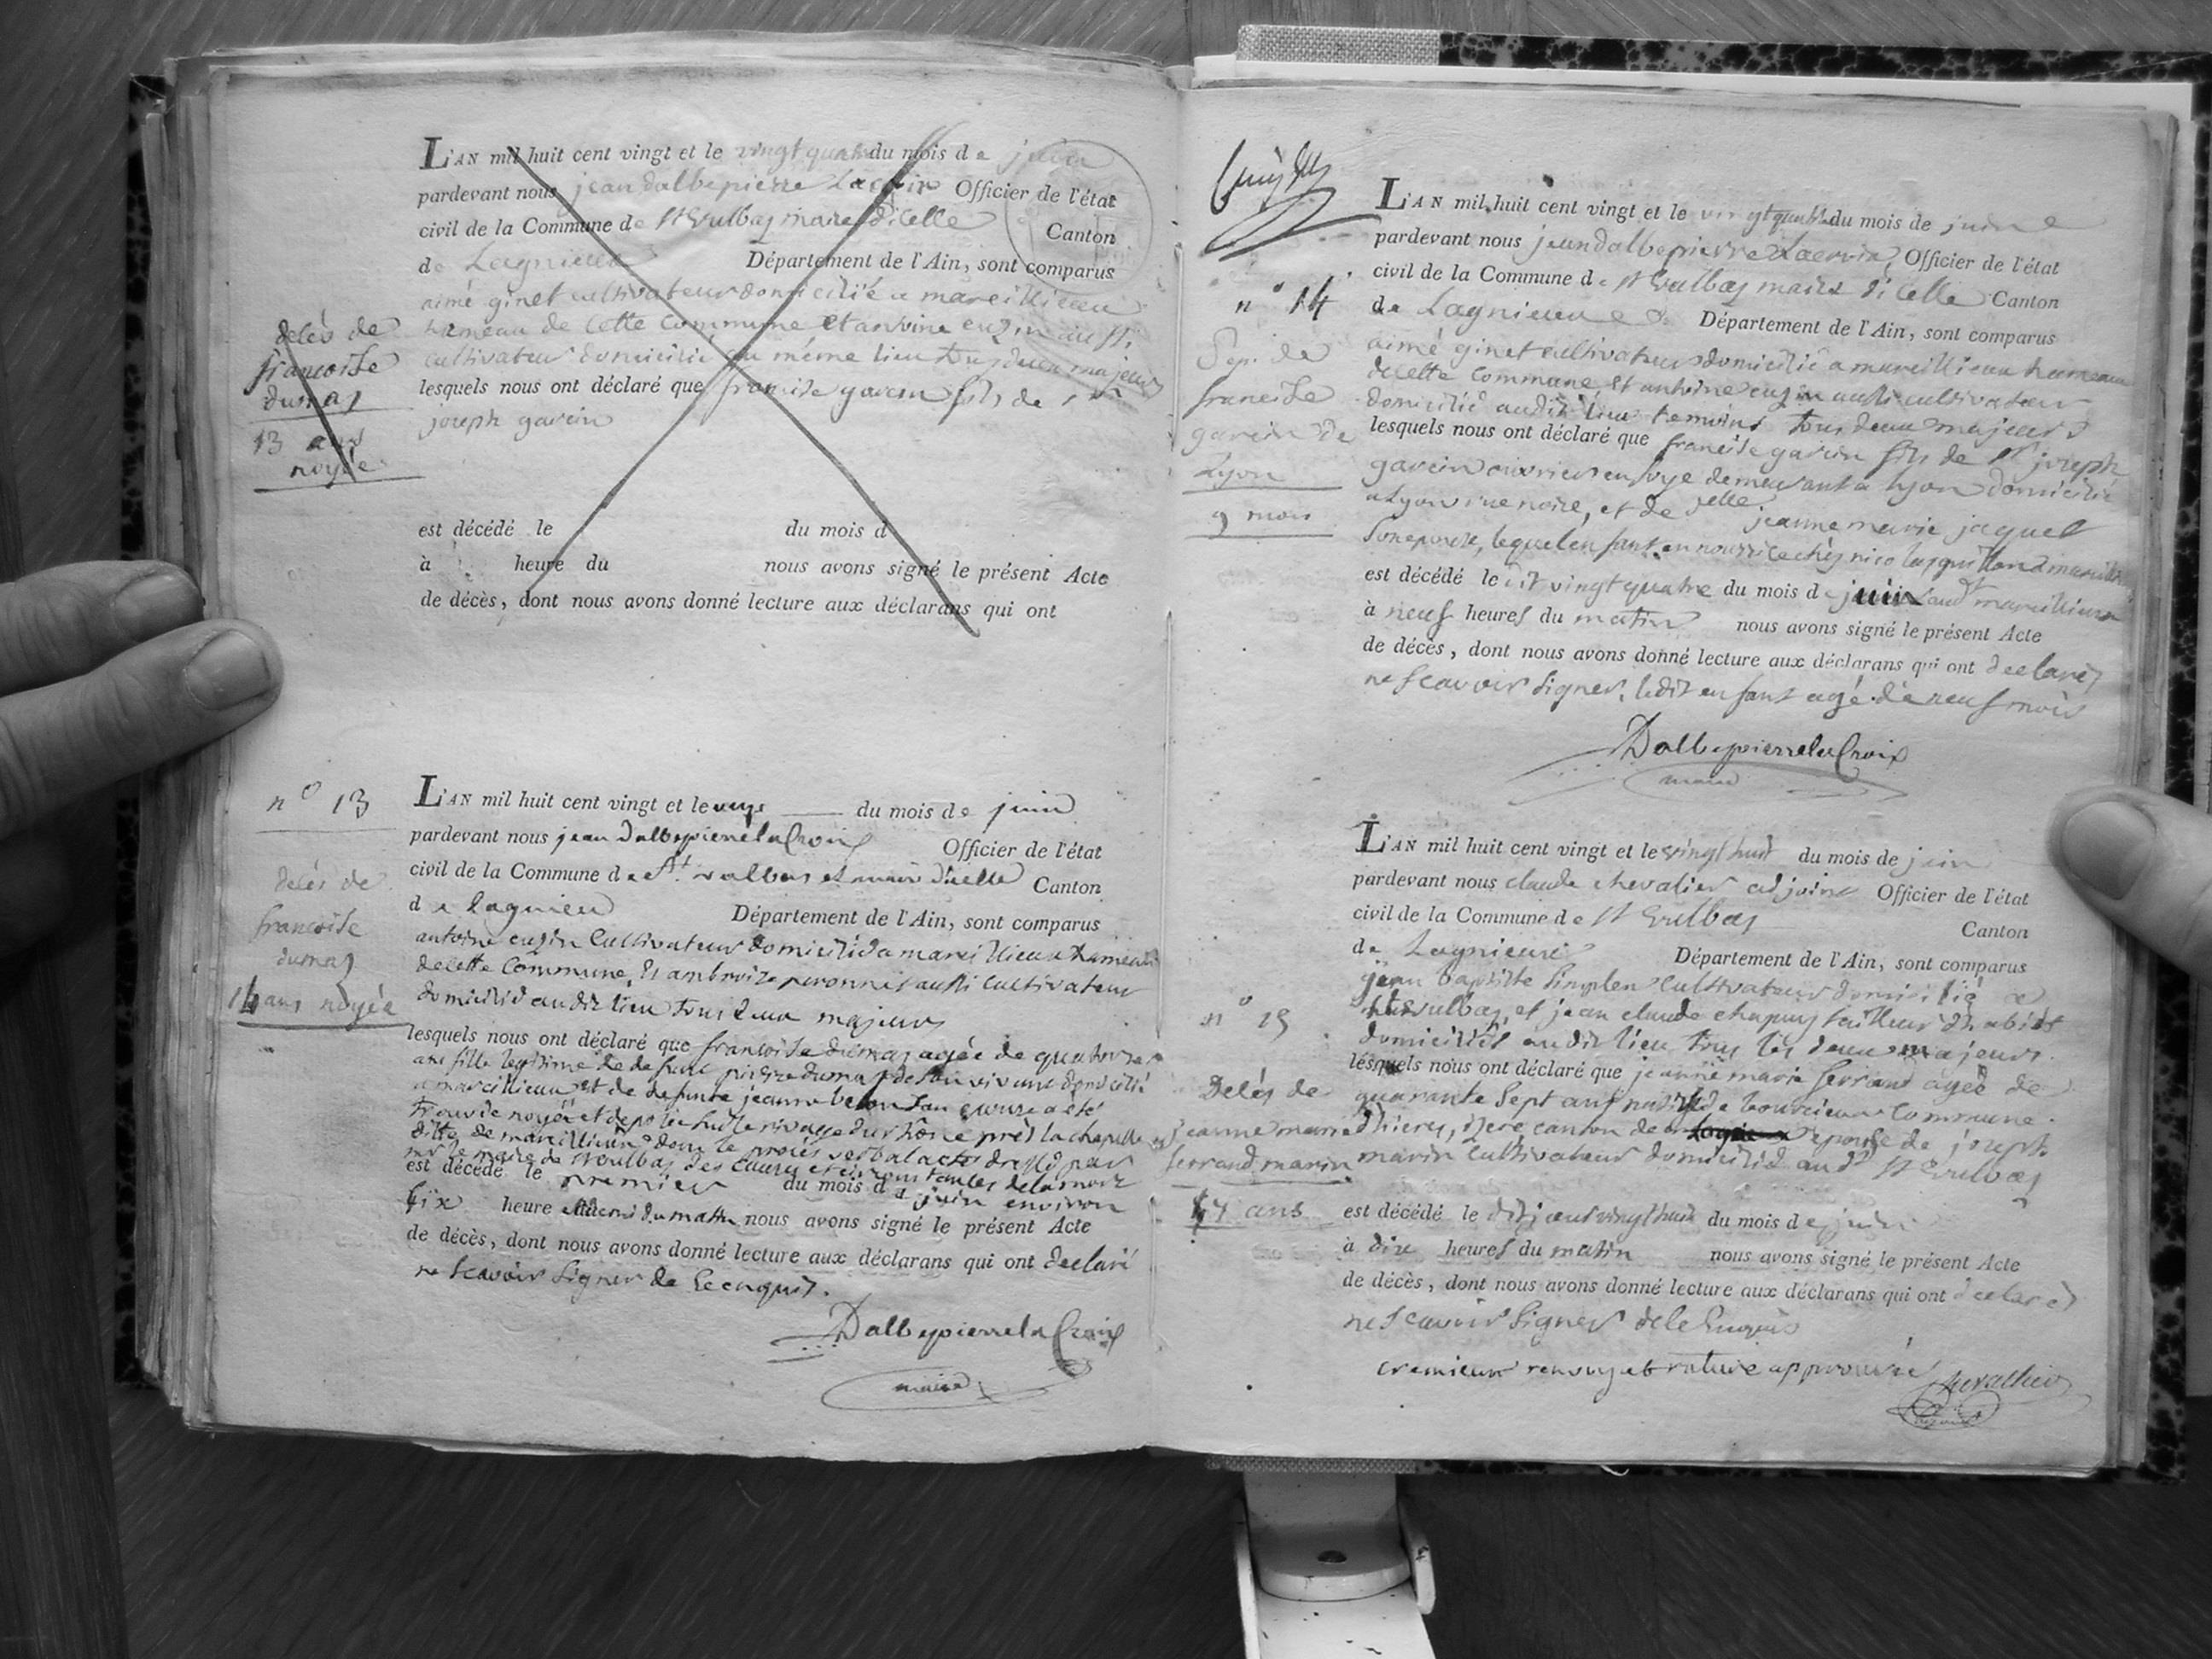 L'AN mil huit cent vingt et le vingt quatre du mois de juin
pardevant nous jean dalbepierre Lacroix Officier de l'état
civil de la Commune de St Vulbas maire dicelle
Canton
de Lagnieux Département de l'Ain, sont comparus
aimé ginet cultivateur domicilié a marcillieux
hameau de cette Commune et antoine cuzin aussi
cultivateur domicilié au même lieu tous deux majeurs
lesquels nous ont déclaré que francoise garein fils de
joseph garein
decés de
francoise
dumas
13 ans
noyée
est décédé le du mois d
à heure du nous avons signé le présent Acte
de décès, dont nous avons donné lecture aux déclarans qui ont
n° 13
decés de
francoise
dumas
14 ans noyée
L'AN mil huit cent vingt et le onze du mois de juin
pardevant nous jean Dalbepierre la Croix Officier de l'état
civil de la Commune de St. vulbas et maire dicelle Canton
de lagnieu Département de l'Ain, sont comparus
antoine cuzin Cultivateur domicilié a marcillieux hameau
de cette Commune, et ambroise peronnet aussi Cultivateur
domicilié au dit lieu tous deux majeurs
lesquels nous ont déclaré que francoise dumas agée de quatorze
ans fille legitime de defunt pierre dumas de son vivant domicilié
a marcillieux et de defunte jeanne son epouse a été
trouvée noyée et deposée sur le rivage du rhône près la chapelle
ditte de marcillieux dont le procès verbal acte dressé par
mr le maire de St vulbas des causes et circonstances de la mort
est décédé le premier du mois de juin environ
six heure et demi du matin nous avons signé le présent Acte
de décès, dont nous avons donné lecture aux déclarans qui ont declaré
ne scavoir signer de ce enquis.
Dalbepierre la Croix
maire
n° 14
francoise
garein de
Lyon
9 mois
L'AN mil huit cent vingt et le vingt quatre du mois de juin
pardevant nous jean dalbepierre Lacroix, Officier de l'état
civil de la Commune de St Vulbas maire dicelle Canton
de Lagnieux Département de l'Ain, sont comparus
aimé ginet cultivateur domicilié a marcillieux hameau
de cette commune et antoine cuzin aussi cultivateur
domicilié audit lieu temoins tous deux majeurs
lesquels nous ont déclaré que francoise garein fils de Sr joseph
garein ouvrier en soye demeurant a lyon domicilié
a Lyon rue noire, et de jeanne marie jaquet
son epouse, lequel enfant en nourrice chés nicolas
est décédé le dit vingt quatre du mois de juin audt marcillieux
à neuf heures du matin nous avons signé le présent Acte
de décès, dont nous avons donné lecture aux déclarans qui ont declaré
ne scavoir signer, ledit enfant agé de neuf mois
Dalbepierre la Croix
maire
L'AN mil huit cent vingt et le vingt huit du mois de juin
pardevant nous claude chevalier adjoint Officier de l'état
civil de la Commune de St Vulbas
Canton
de Lagnieux Département de l'Ain, sont comparus
jean baptiste cultivateur domicilié a
St vulbas, et jean claude chapuy tailleur dhabits
domiciliés audit lieu tous les deux majeurs
lesquels nous ont déclaré que jeanne marie ferrand agée de
quarante sept ans native de commune
dhieres, isere canton de epouse de joseph
marin cultivateur domicilié audt St Vulbas
n° 15
Decés de
jeanne marie
ferrand marin
47 ans
est décédé le dit jour vingt huit du mois de juin
à dix heures du matin nous avons signé le présent Acte
de décès, dont nous avons donné lecture aux déclarans qui ont declaré
ne scavoir signer de ce Enquis
cremieux renvoy et rature approuvée
chevallier